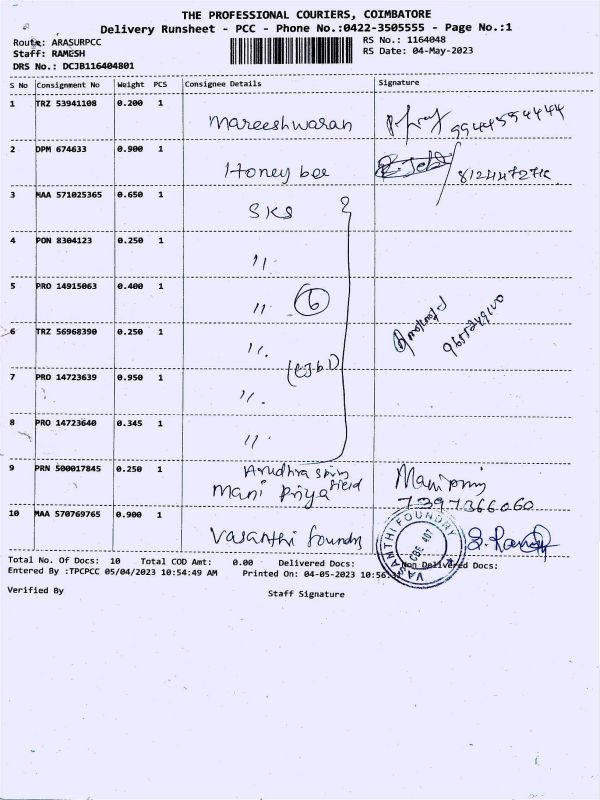 THE PROFESSIONAL COURIERS, COIMBATORE
Delivery Runsheet - PCC - Phone No.:0422-3505555 - Page No.:1
Route: ARASURPCC
RS No.: 1164048
Staff: RAMESH
RS Date: 04-May-2023
DRS No.: DCJB116404801
S No Consignment No Weight PCS Consignee Details Signature
1 TRZ 53941108 0.200 1
Mareeshwaran
2 DPM 674633 0.900 1
Honey bee
3 MAA 571025365 0.650 1
SKS
4 PON 8304123 0.250 1
"
5 PRO 14915063 0.400 1
" 6
6 TRZ 56968390 0.250 1
"
7 PRO 14723639 0.950 1
"
8 PRO 14723640 0.345 1
"
9 PRN 500017845 0.250 1
Mani Priya
7397366060
10 MAA 570769765 0.900 1
Vasanthi foundry
VASANTHI FOUNDRY
CBE 407
Total No. Of Docs: 10 Total COD Amt: 0.00 Delivered Docs: Non Delivered Docs:
Entered By :TPCPCC 05/04/2023 10:54:49 AM Printed On: 04-05-2023
Verified By
Staff Signature